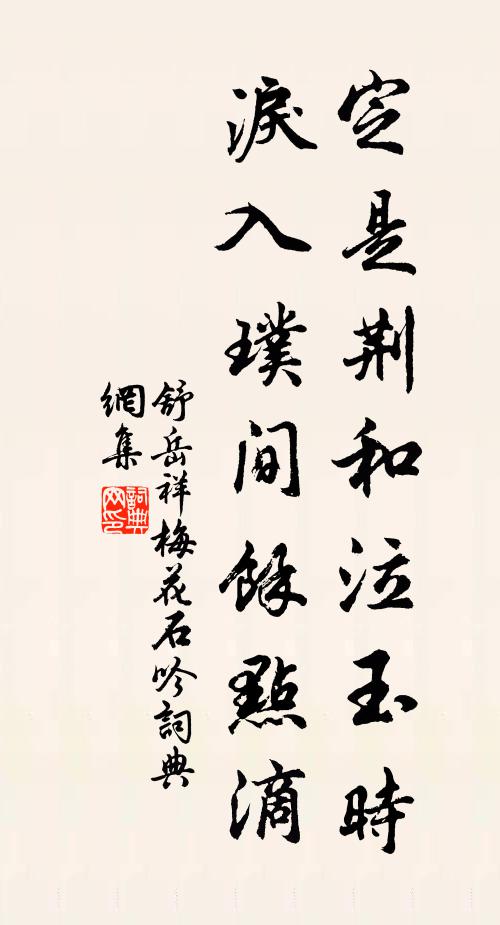 定是荆和泣玉時
淚入璞間餘點滴
舒岳祥梅花石吟詞典
網集
詞典
网印